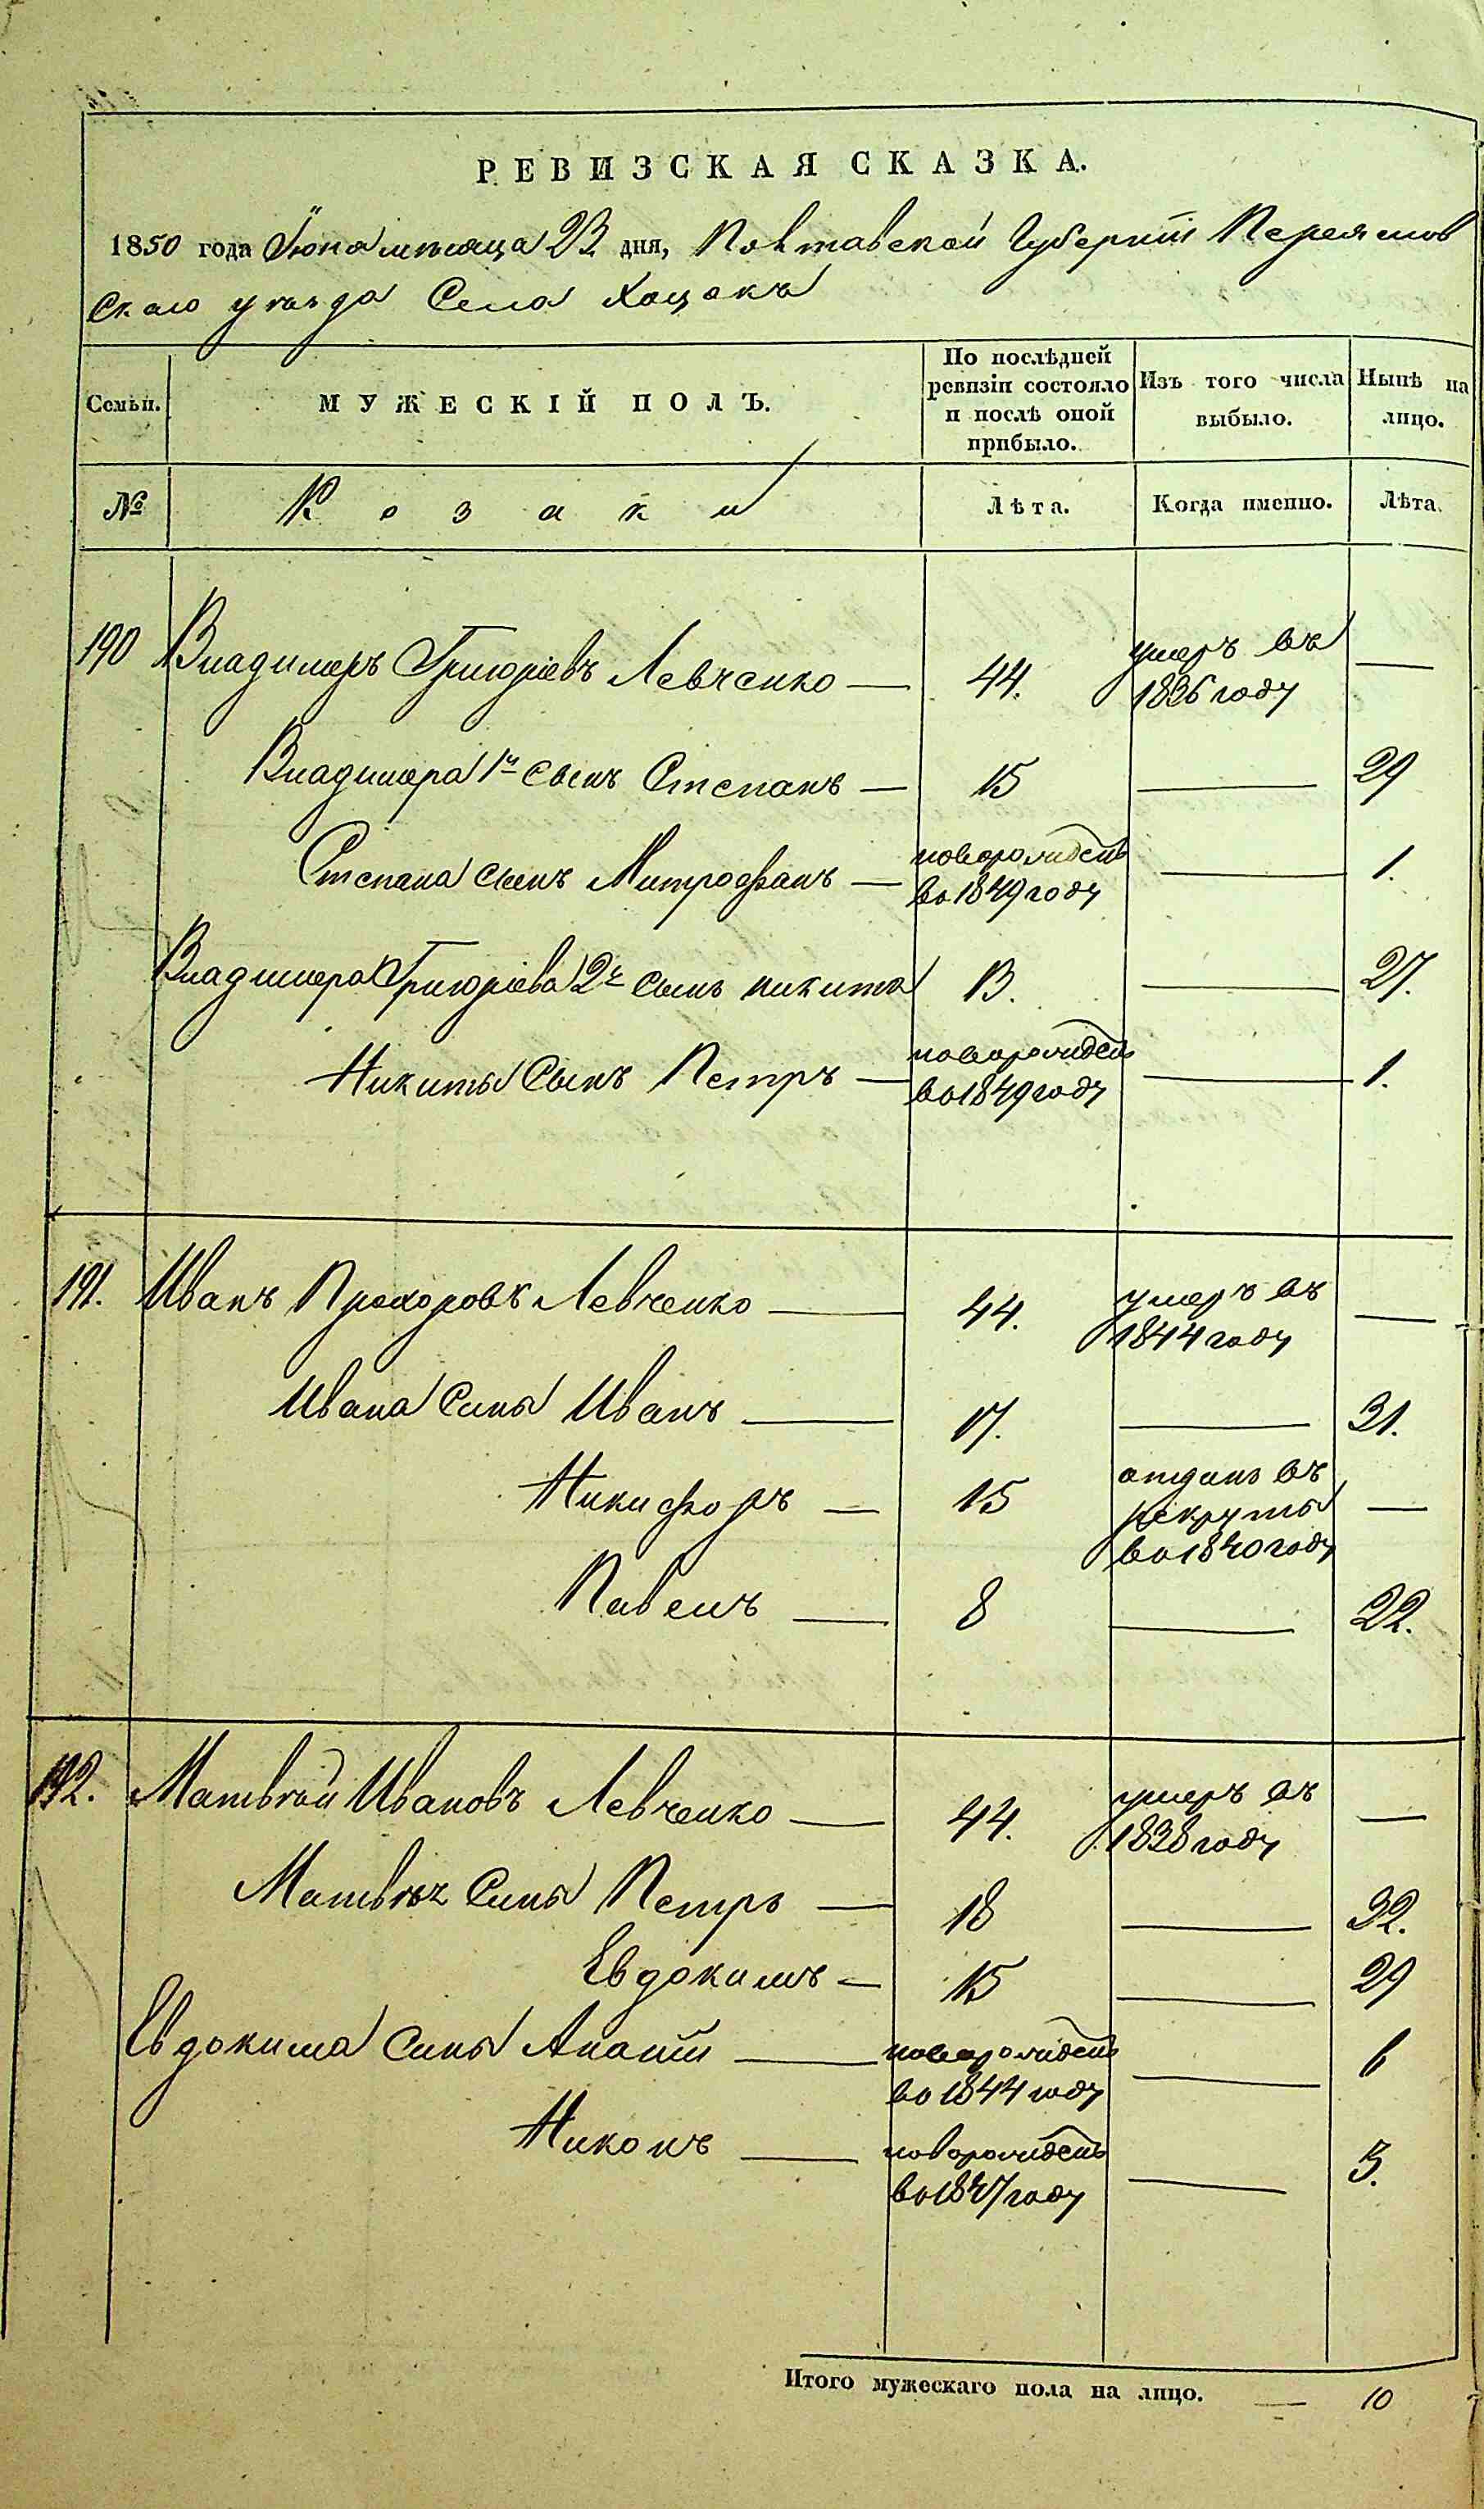 РЕВИЗСКАЯ СКАЗКА.
1850 года Іюня мѣсяца 23 дня, Полтавской Губерніи Переяслов
скаго уѣзда Села Хоцокъ
Семьи.
МУЖЕСКІЙ ПОЛЪ.
По послѣдней
ревизіи состояло
и послѣ оной
прибыло.
Изъ того числа
выбыло.
Нынѣ на
лицо.
№
Козаки
Лѣта.
Когда именно.
Лѣта.
190 Владимеръ Григоріевъ Левченко — 44. умеръ въ 1836 году —
Владимера 1й сынъ Степанъ — 15 — 29
Степана сынъ Митрофанъ — новорожденъ во 1849 году — 1.
Владимера Григоріева 2й сынъ Никита 13. — 27.
Никиты сынъ Петръ — новорожден во 1849 году — 1.
191. Иванъ Прохоровъ Левченко — 44. умеръ въ 1844 году —
Ивана сины Иванъ — 17. — 31.
Никифоръ — 15 отданъ въ рекруты во 1840 году —
Павелъ — 8 — 22.
192. Матвѣй Ивановъ Левченко — 44. умеръ въ 1838 году —
Матвѣя сины Петръ — 18 — 32.
Евдокимъ — 15 — 29
Евдокима сины Ананій — новорожденъ во 1844 году — 6
Никонъ — новорожденъ во 1847 году — 3.
Итого мужескаго пола на лицо. — 10